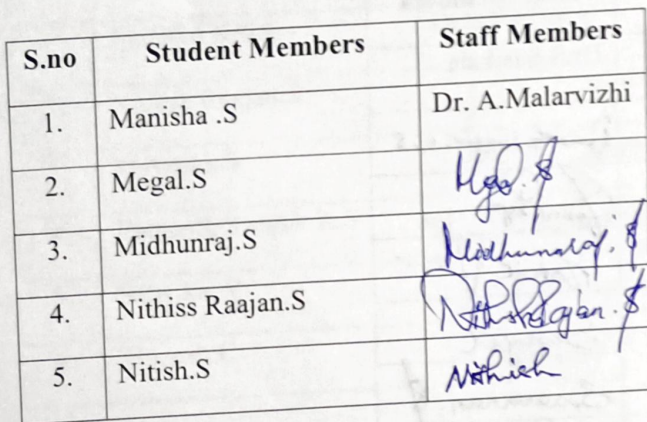 S.no Student Members Staff Members
1. Manisha .S Dr. A.Malarvizhi
2. Megal.S
3. Midhunraj.S Midhunraj.S
4. Nithiss Raajan.S
5. Nitish.S Nithish